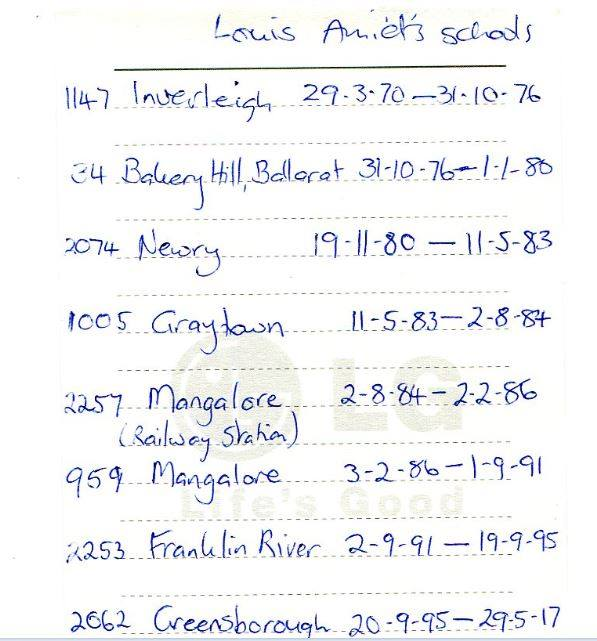 Louis Amiet's schools
1147 Inverleigh 29-3-70 — 31-10-76
34 Bakery Hill, Ballarat 31-10-76 - 1-1-80
2074 Newry 19-11-80 — 11-5-83
1005 Graytown 11-5-83 — 2-8-84
LG
2257 Mangalore 2-8-84 - 2-2-86
(Railway Station)
959 Mangalore 3-2-86 — 1-9-91
Life's Good
2253 Franklin River 2-9-91 — 19-9-95
2062 Greensborough 20-9-95 — 29-5-17